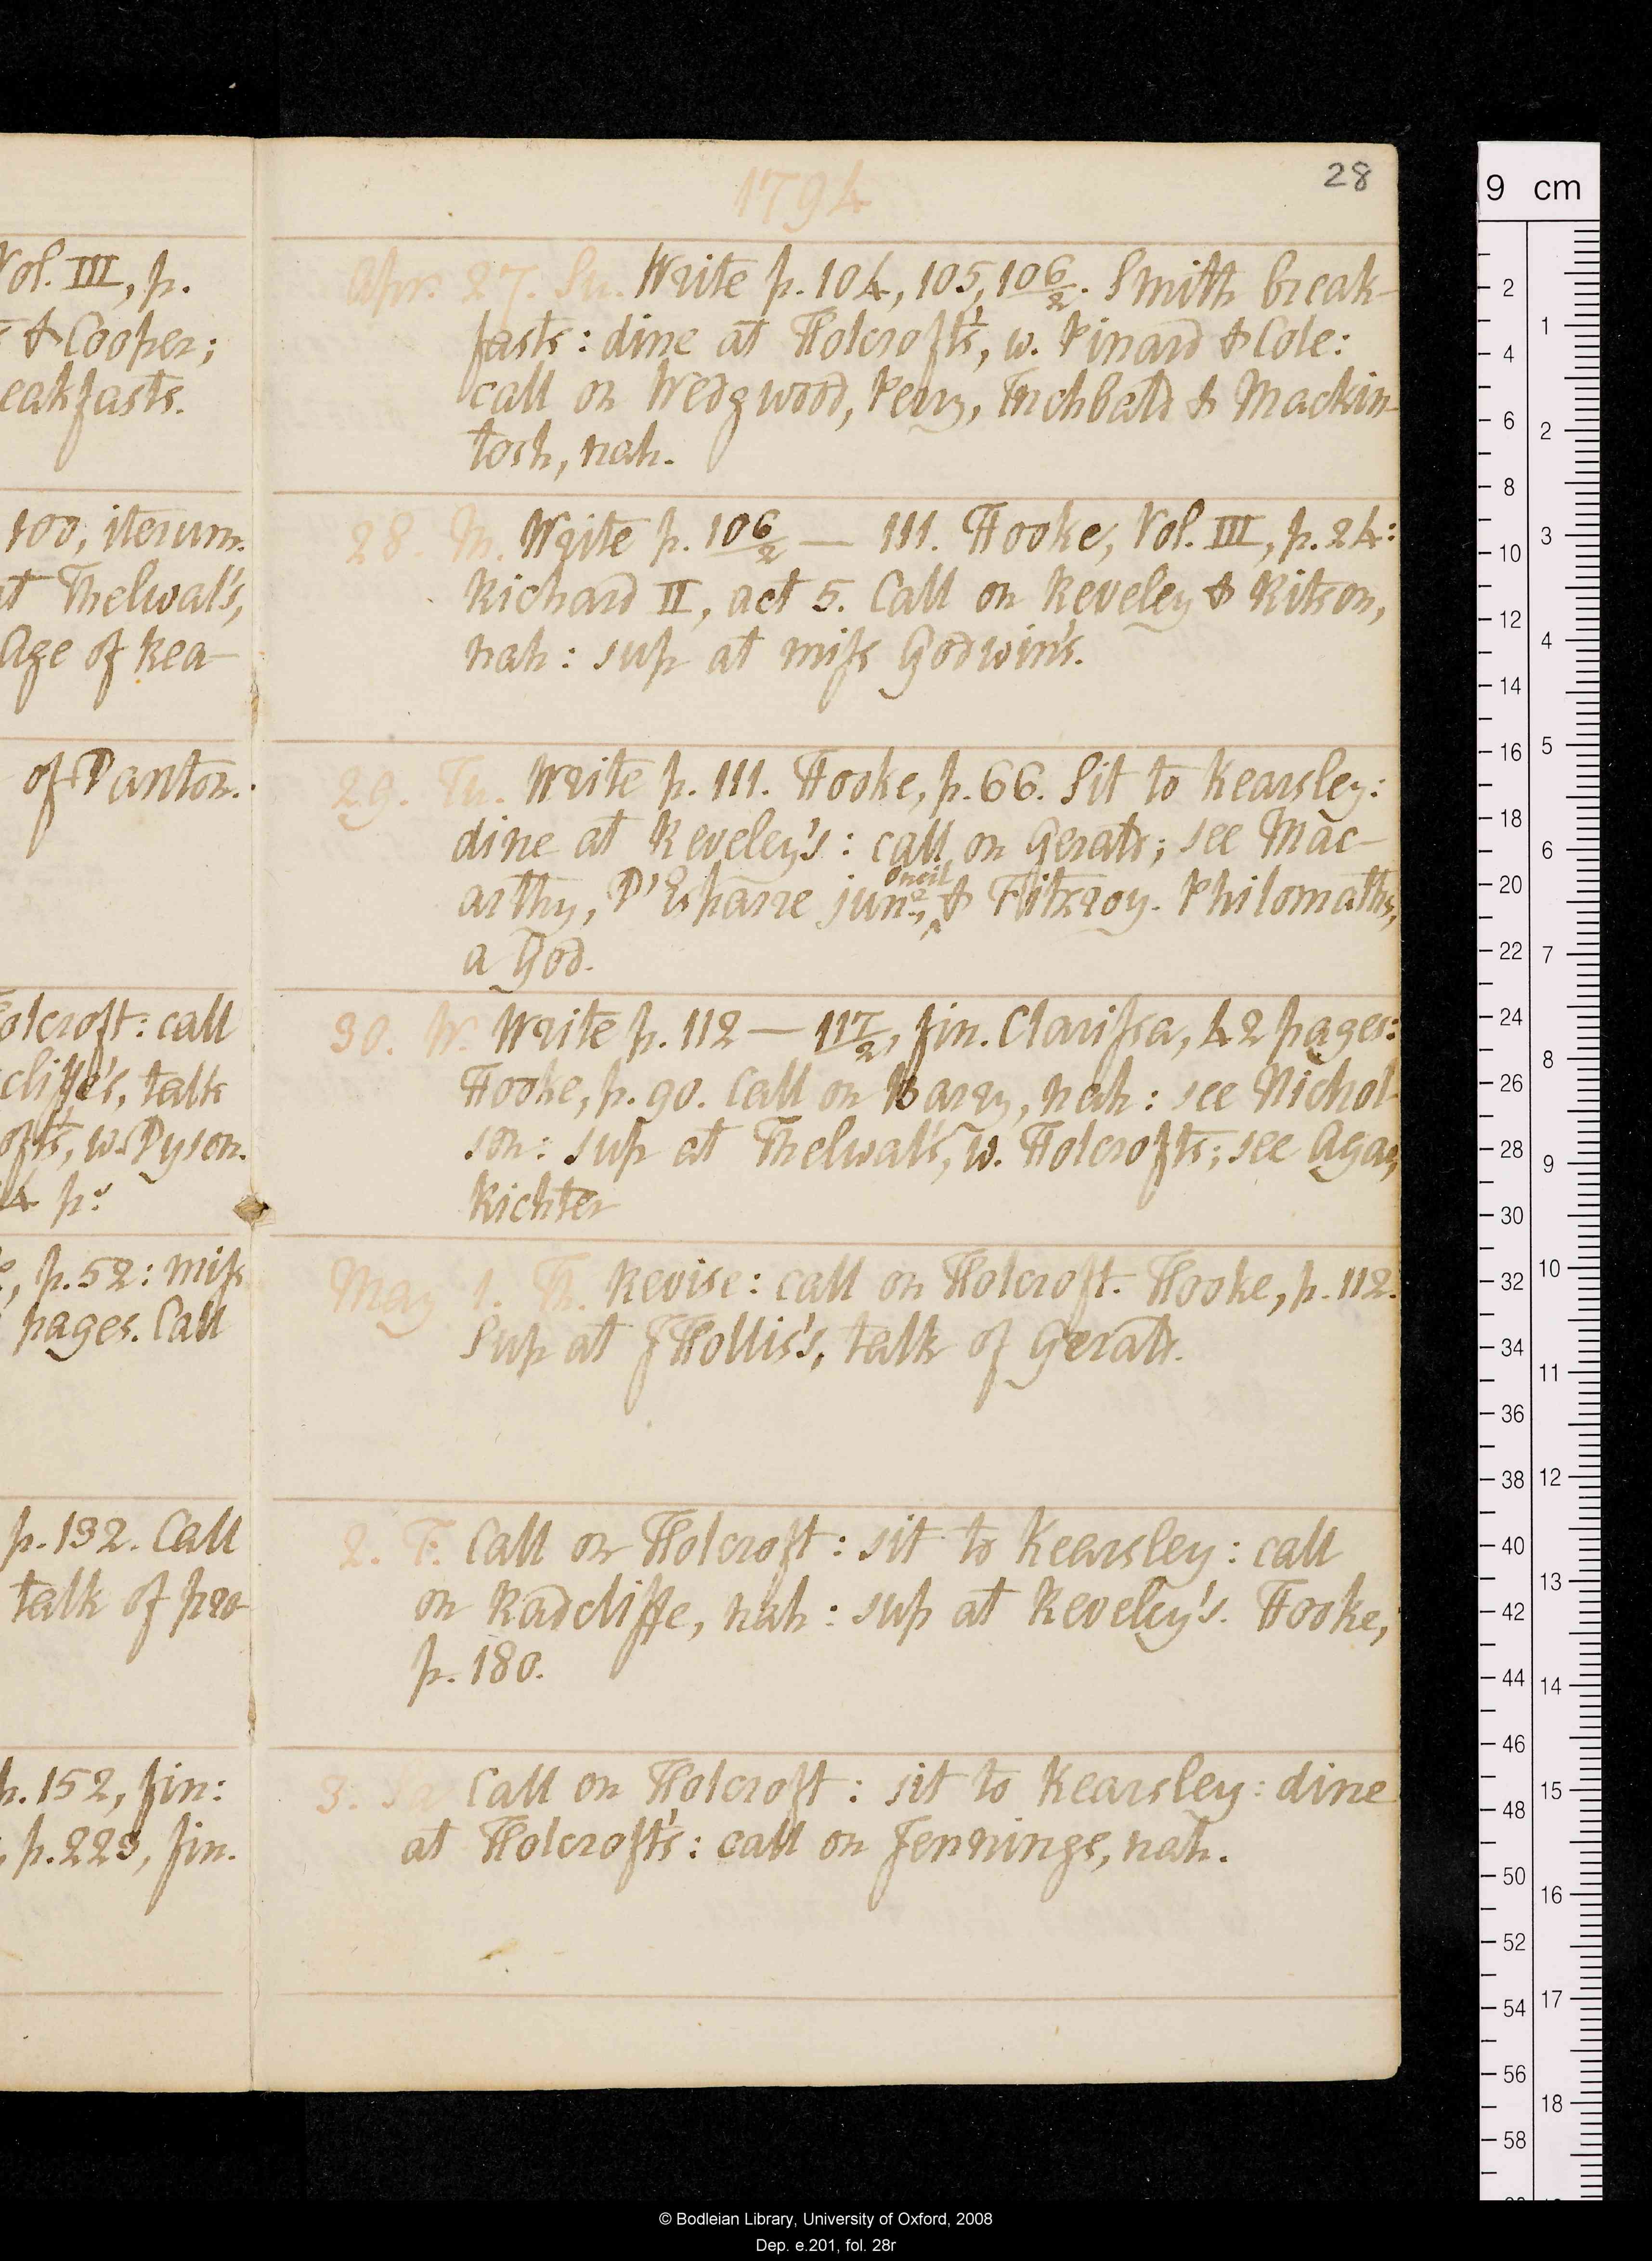 Vol. III, p.
& Cooper;
eakfasts.
100, iterum.
at Thelwal's,
Age of Rea-
of Danton.
olcroft: call
cliffe's, talk
oft's, w. Dyson.
4 p.
, p. 52: miss
pages. Call
p. 132. Call
talk of pro-
p. 152, fin:
, p. 223, fin.
28
1794
Apr. 27. Su. Write p. 104, 105, 106/2. Smith break-
fasts: dine at Holcroft's, w. Pinard & Cole:
call on Wedgwood, Perry, Inchbald & Mackin-
tosh, nah.
28. M. Write p. 106/2 — 111. Hooke, Vol. III, p. 24:
Richard II, act 5. Call on Reveley & Ritson,
nah: sup at miss Godwin's.
29. Tu. Write p. 111. Hooke, p. 66. Sit to Kearsley:
dine at Reveley's: call on Gerald; see Mac-
oneil
arthy, D'Esparre junr, ^ & Fitzroy. Philomaths,
a God.
30. W. Write p. 112 — 117/2, fin. Clarissa, 42 pages:
Hooke, p. 90. Call on Barry, nah: see Nichol-
son: sup at Thelwal's, w. Holcrofts; see Agar,
Richter
May 1. Th. Revise: call on Holcroft. Hooke, p. 112.
Sup at J Hollis's, talk of Gerald.
2. F. Call on Holcroft: sit to Kearsley: call
on Radcliffe, nah: sup at Reveley's. Hooke,
p. 180.
3. Sa Call on Holcroft: sit to Kearsley: dine
at Holcroft's: call on Jennings, nah.
9 cm
2
4
6
8
10
12
14
16
18
20
22
24
26
28
30
32
34
36
38
40
42
44
46
48
50
52
54
56
58
1
2
3
4
5
6
7
8
9
10
11
12
13
14
15
16
17
18
© Bodleian Library, University of Oxford, 2008
Dep. e.201, fol. 28r